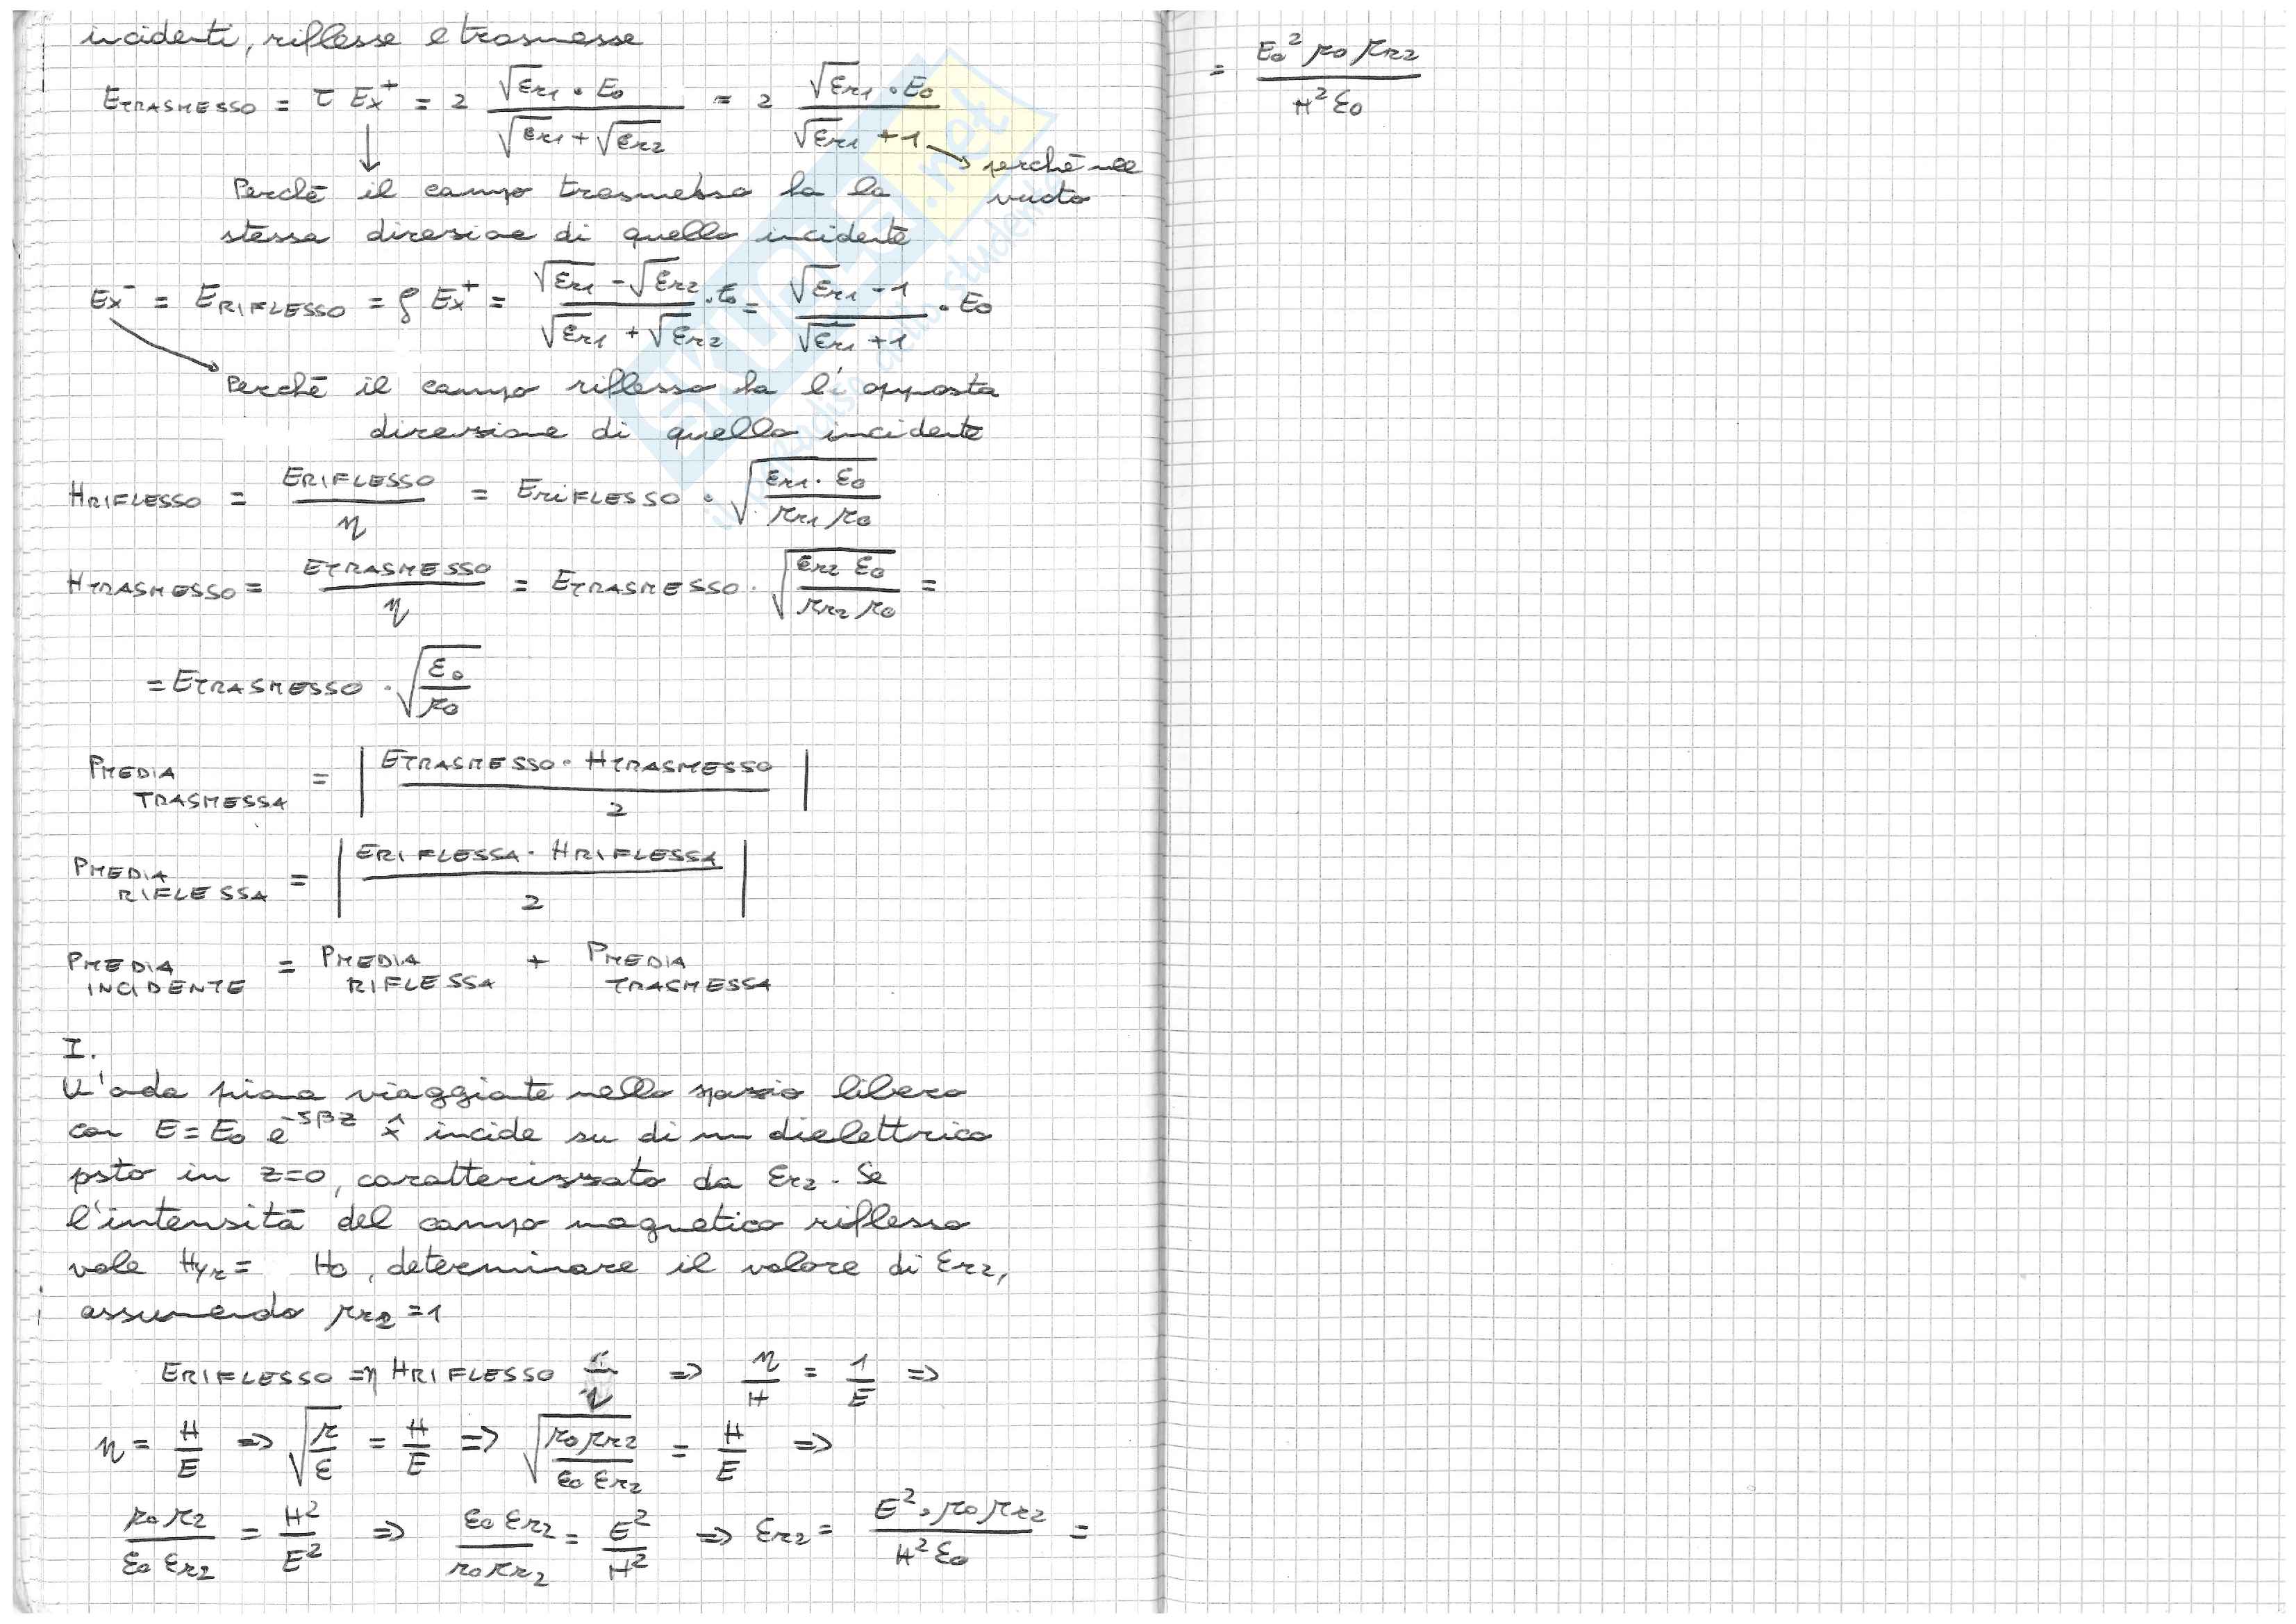 incidenti, riflesse e trasmesse
ETRASMESSO = τ Ex⁺ = 2 √εr1 · E0 / (√εr1 + √εr2) = 2 √εr1 · E0 / (√εr1 + 1)
→ perchè nel vuoto
↓ Perchè il campo trasmesso ha la
stessa direzione di quello incidente
Ex⁻ = ERIFLESSO = ρ Ex⁺ = (√εr1 - √εr2) / (√εr1 + √εr2) · E0 = (√εr1 - 1) / (√εr1 + 1) · E0
Perchè il campo riflesso ha l' opposta
direzione di quello incidente
HRIFLESSO = ERIFLESSO / η = ERIFLESSO · √(εr1 · ε0 / μr1 μ0)
HTRASMESSO = ETRASMESSO / η = ETRASMESSO · √(εr2 ε0 / μr2 μ0) =
= ETRASMESSO · √(ε0 / μ0)
PMEDIA TRASMESSA = | ETRASMESSO · HTRASMESSO / 2 |
PMEDIA RIFLESSA = | ERIFLESSA · HRIFLESSA / 2 |
PMEDIA INCIDENTE = PMEDIA RIFLESSA + PMEDIA TRASMESSA
I.
U'onda piana viaggiante nello spazio libero
con E = E0 e^-jβz x̂ incide su di un dielettrico
psto in z=0, caratterizzato da εr2. Se
l'intensità del campo magnetico riflesso
vale Hyr = H0, determinare il valore di εr2,
assumendo μr2 = 1
ERIFLESSO = η HRIFLESSO => η / H = 1 / E =>
η = H / E => √(μ / ε) = H / E => √(μ0 μr2 / ε0 εr2) = H / E =>
μ0 μ2 / ε0 εr2 = H² / E² => ε0 εr2 / μ0 μr2 = E² / H² => εr2 = E² · μ0 μr2 / H² ε0 =
= E0² μ0 μr2 / H² ε0
SKUOLA.net